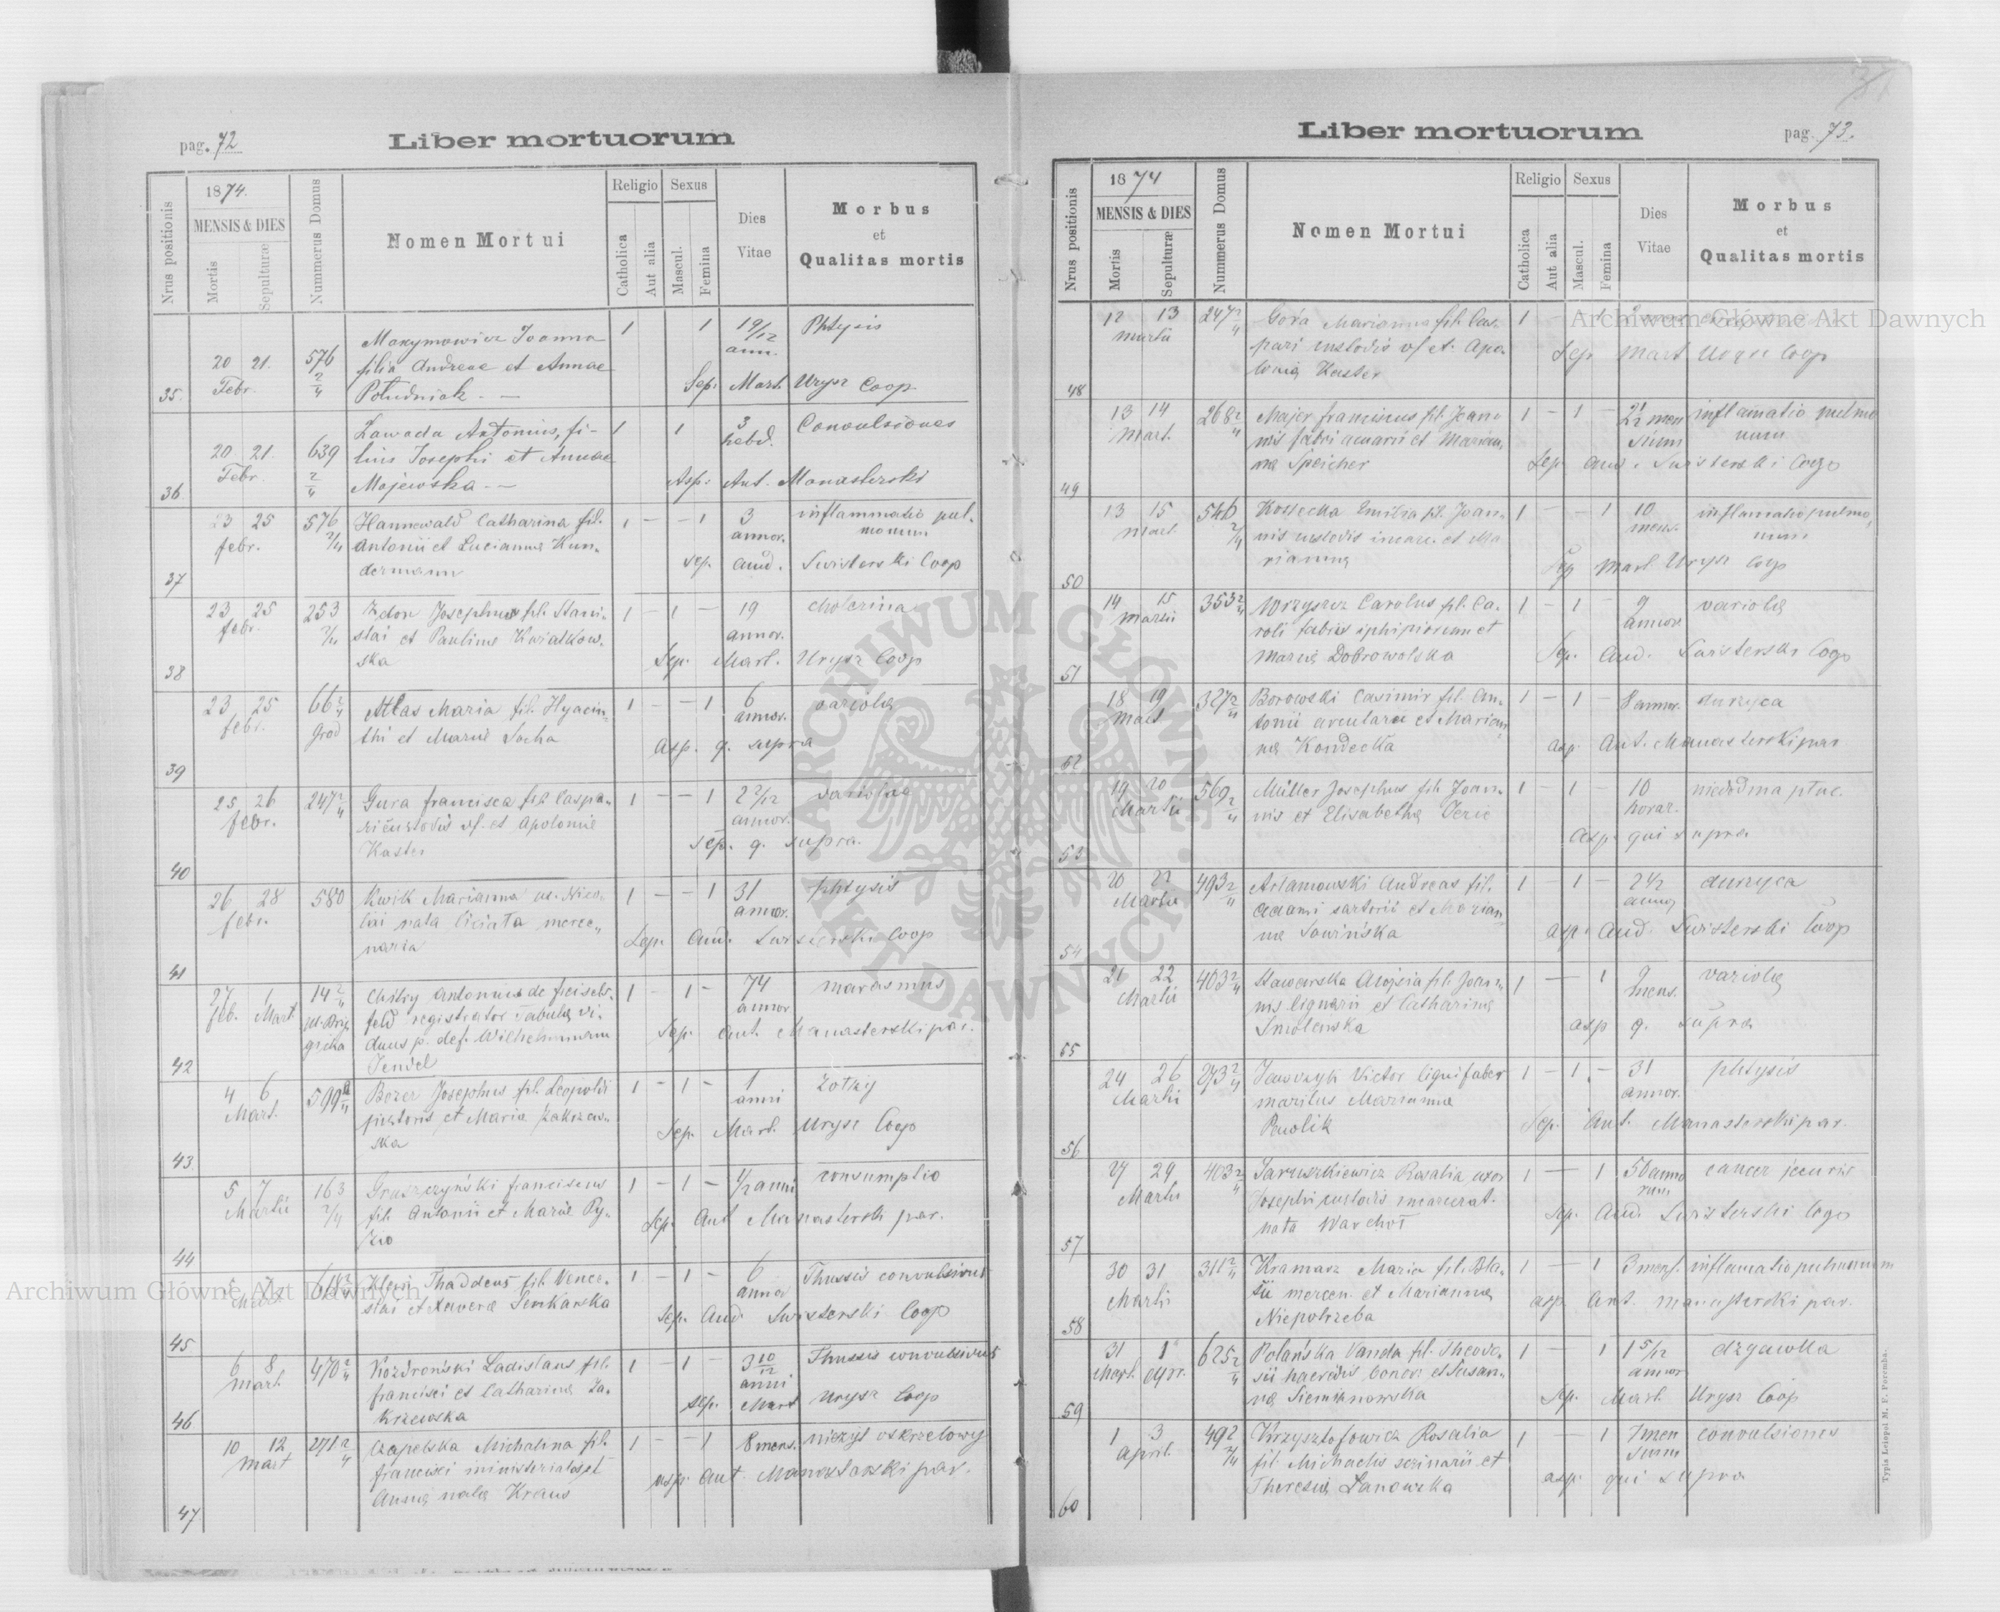 pag. 72
Liber mortuorum
Nrus positionis
1874.
MENSIS & DIES
Mortis
Sepulturæ
Nummerus Domus
Nomen Mortui
Religio
Catholica
Aut alia
Sexus
Mascul.
Femina
Dies
Vitae
Morbus
et
Qualitas mortis
35.
20 21.
Febr.
576 2/4
Maxymowicz Joanna
filia Andreae et Annae
Południak
1 1
19/12
ann.
Phtysis
Sep. Mart. Urysz Coop
36
20 21.
Febr.
639 2/4
Zawada Antonius, fi-
lius Josephi et Annae
Majewska
1 1
3
hebd.
Convulsiones
Asp: Ant. Manasterski
37
23 25
febr.
576 2/4
Hannewald Catharina fil.
Antonii et Lucianna Kun-
dermann
1 - - 1
3
annor.
inflammatio pul-
monum
Sep. Aud. Swisterski Coop
38
23 25
febr.
253 2/4
Zdon Josephus fil. Stani-
slai et Paulina Kwiatkow-
ska
1 - 1 -
19
annor.
cholerina
Sep. Mart. Urysz Coop
39
23 25
febr.
66 2/4
Grod
Atlas Maria fil. Hyacin-
thi et Maria Socha
1 - - 1
6
annor.
variola
asp. q. supra
40
25 26
febr.
247 2/4
Gura francisca fil. Caspa-
ri custodis et Apolonia
Kaster
1 - - 1
2 2/12
annor.
variola
sep. q. supra.
41
26 28
febr.
580
Kwik Marianna ux. Nico-
lai nata Ciciata merce-
naria
1 - - 1
31
annor.
phtysis
Sep. Aud. Swisterski Coop
42
27 1
feb. Mart
14 2/4
Chitry Antonius de freisels-
feld registrator Tabulae vi-
duus p. def. Wilhelminam
Tendel
1 - 1 -
74
annor.
marasmus
Sep. Ant. Manasterski par.
43
4 6
Mart.
599 2/4
Bezer Josephus fil. Leopoldi
pistoris et Maria Zakrzew-
ska
1 - 1 -
1
anni
Zołzy
Sep. Mart. Urysz Coop
44
5 7
Martii
163 2/4
Gruszczyński franciscus
fil. Antonii et Maria Py-
zio
1 - 1 -
1/2 anni
consumptio
Sep. Ant. Manasterski par.
45
5 7
Mart
618 2/4
Klein Thaddeus fil. Vences-
slai et Xavera Senkarska
1 - 1 -
6
annor
Thussis convulsivus
Sep. Aud. Swisterski Coop
46
6 8
Mart.
470 2/4
Kozdroński Ladislaus fil.
francisci et Catharina Za-
krzewska
1 - 1 -
3 10/12
anni
Thussis convulsivus
Sep. Mart Urysz Coop
47
10 12
Mart
271 2/4
Czapelska Michalina fil.
francisci ministerialis et
Anna nata Kraus
1 - - 1
8 mens.
nieżyt oskrzelowy
asp. Ant. Manasterski par.
Liber mortuorum
pag. 73.
Nrus positionis
1874
MENSIS & DIES
Mortis
Sepulturæ
Nummerus Domus
Nomen Mortui
Religio
Catholica
Aut alia
Sexus
Mascul.
Femina
Dies
Vitae
Morbus
et
Qualitas mortis
48
12 13
Martii
247 2/4
Góra Marianna fil. Cas-
pari custodis et Apo-
lonia Kaster
1 - 1
Sep. Mart Urysz Coop
49
13 14
Mart.
268 2/4
Majer franciscus fil. Joan-
nis fabri et Marian-
na Speicher
1 - 1 -
2 1/2 men
sium
inflamatio pulmo
num
Sep. Aud. Swisterski Coop
50
13 15
Mart.
546 2/4
Kossecka Emilia fil. Joan-
nis custodis incarc. et Ma-
rianna
1 - - 1
10
mens.
inflamatio pulmo,
num
Sep Mart Urysz Coop
51
14 15
Martii
353 2/4
Wrzyszcz Carolus fil. Ca-
roli fabris ephipiorum et
Maria Dobrowolska
1 - 1 -
9
annor
variola
Sep. Aud. Swisterski Coop
52
18 19
Mart
327 2/4
Borowski Casimir fil. An-
tonii arcularii et Marian-
na Kondecka
1 - 1 -
8 annor.
durzyca
asp. Ant. Manasterski par
53
19 20
Martii
569 2/4
Müller Josephus fil. Joan-
nis et Elisabetha Jezie
1 - 1 -
10
horar.
niedodma płuc.
asp. qui supra
54
20 22
Martii
493 2/4
Artamowski Andreas fil.
Adami sartorii et Marian-
na Sowińska
1 - 1 -
2 1/2
annor
durzyca
asp. Aud. Swisterski Coop
55
21 22
Martii
403 2/4
Stawarska Alojsia fil. Joan-
nis lignarii et Catharina
Smolewska
1 — 1
9
mens.
variola
asp q. supra
56
24 26
Martii
273 2/4
Victor lignifaber
maritus Marianna
1 - 1 -
31
annor.
phtysis
Sep. Ant. Manasterski par.
57
27 29
Martii
403 2/4
Jaruszkiewicz Rosalia uxor
Josephi custodis incarcerat.
nata Warchoł
1 — 1
50 anno
rum
cancer jecuris
Sep. Aud. Swisterski Coop
58
30 31
Martii
311 2/4
Kramarz Maria fil. Bla-
sii mercen. et Marianna
Niepotrzeba
1 — 1
3 mens.
inflamatio pulmonum
asp. Ant. Manasterski par.
59
31 1
Mart. Apr.
625 2/4
Polańska Vanda fil. Theodo-
sii haeredis bonor. et Susan-
na Siemianowska
1 — 1
1 5/12
annor
drgawka
Sep. Mart. Urysz Coop
60
1 3
April.
492 2/4
Krzysztofowicz Rosalia
fil. Michaelis scrinarii et
Theresia Łanowska
1 — 1
7 men
sium
convulsiones
asp. qui supra
Typis Leiopol M. F. Poremba.
Archiwum Główne Akt Dawnych
ARCHIWUM GŁÓWNE AKT DAWNYCH
Archiwum Główne Akt Dawnych